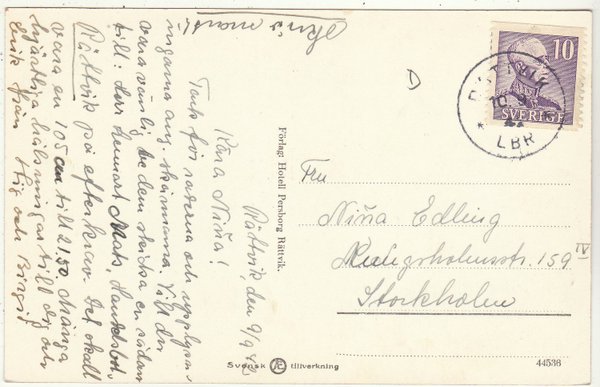 Rättvik den 9/9 42
Kära Nina!
Tack för raderna och upplysningarna
ang. skärmarna. Vill du
vara vänlig be dem skicka en sådan
till: Herr Lennart Mats, Handelsbol.,
Rättvik på efterkrav. Det skall
vara en 105 cm till 21,50
Många
hjärtliga hälsningar till dig och
Erik från Stig och Birgit
Förlag: Hotell Persborg Rättvik.
Svensk Æ tillverkning
10
SVERIGE
RÄTTVIK
LBR
Fru
Nina Edling
Kungsholmsstr. 159 IV
Stockholm
44536